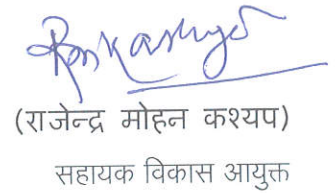 RmKashyap
(राजेन्द्र मोहन कश्यप)
सहायक विकास आयुक्त